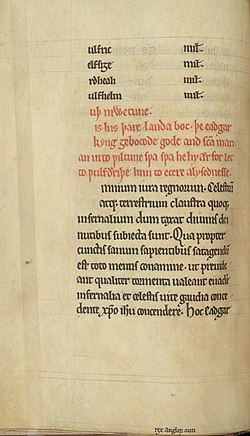 ulfric mił.
ælfsige mił.
rðheah mił.
ulfhelm mił.
is his þare landa boc. þe eadgar
kyng gebocode gode and sc̄a mari
an into piltune spa spa he hyt ær for let
to pulfdriþe him to ecere alysednesse.
mnium iura regnorum. Celestiū
atq; terrestrium claustra quoq;
infernalium dum taxat diuinis dei
nutibus subiecta sunt. Qua propter
cunctis sanum sapientibus satagendū
est toto mentis conamine. ut preuide
ant qualiter tormenta ualeant euade
infernalia et celestis uite gaudia conce
dente xp̄o ih̄u conscendere. Hoc eadgar